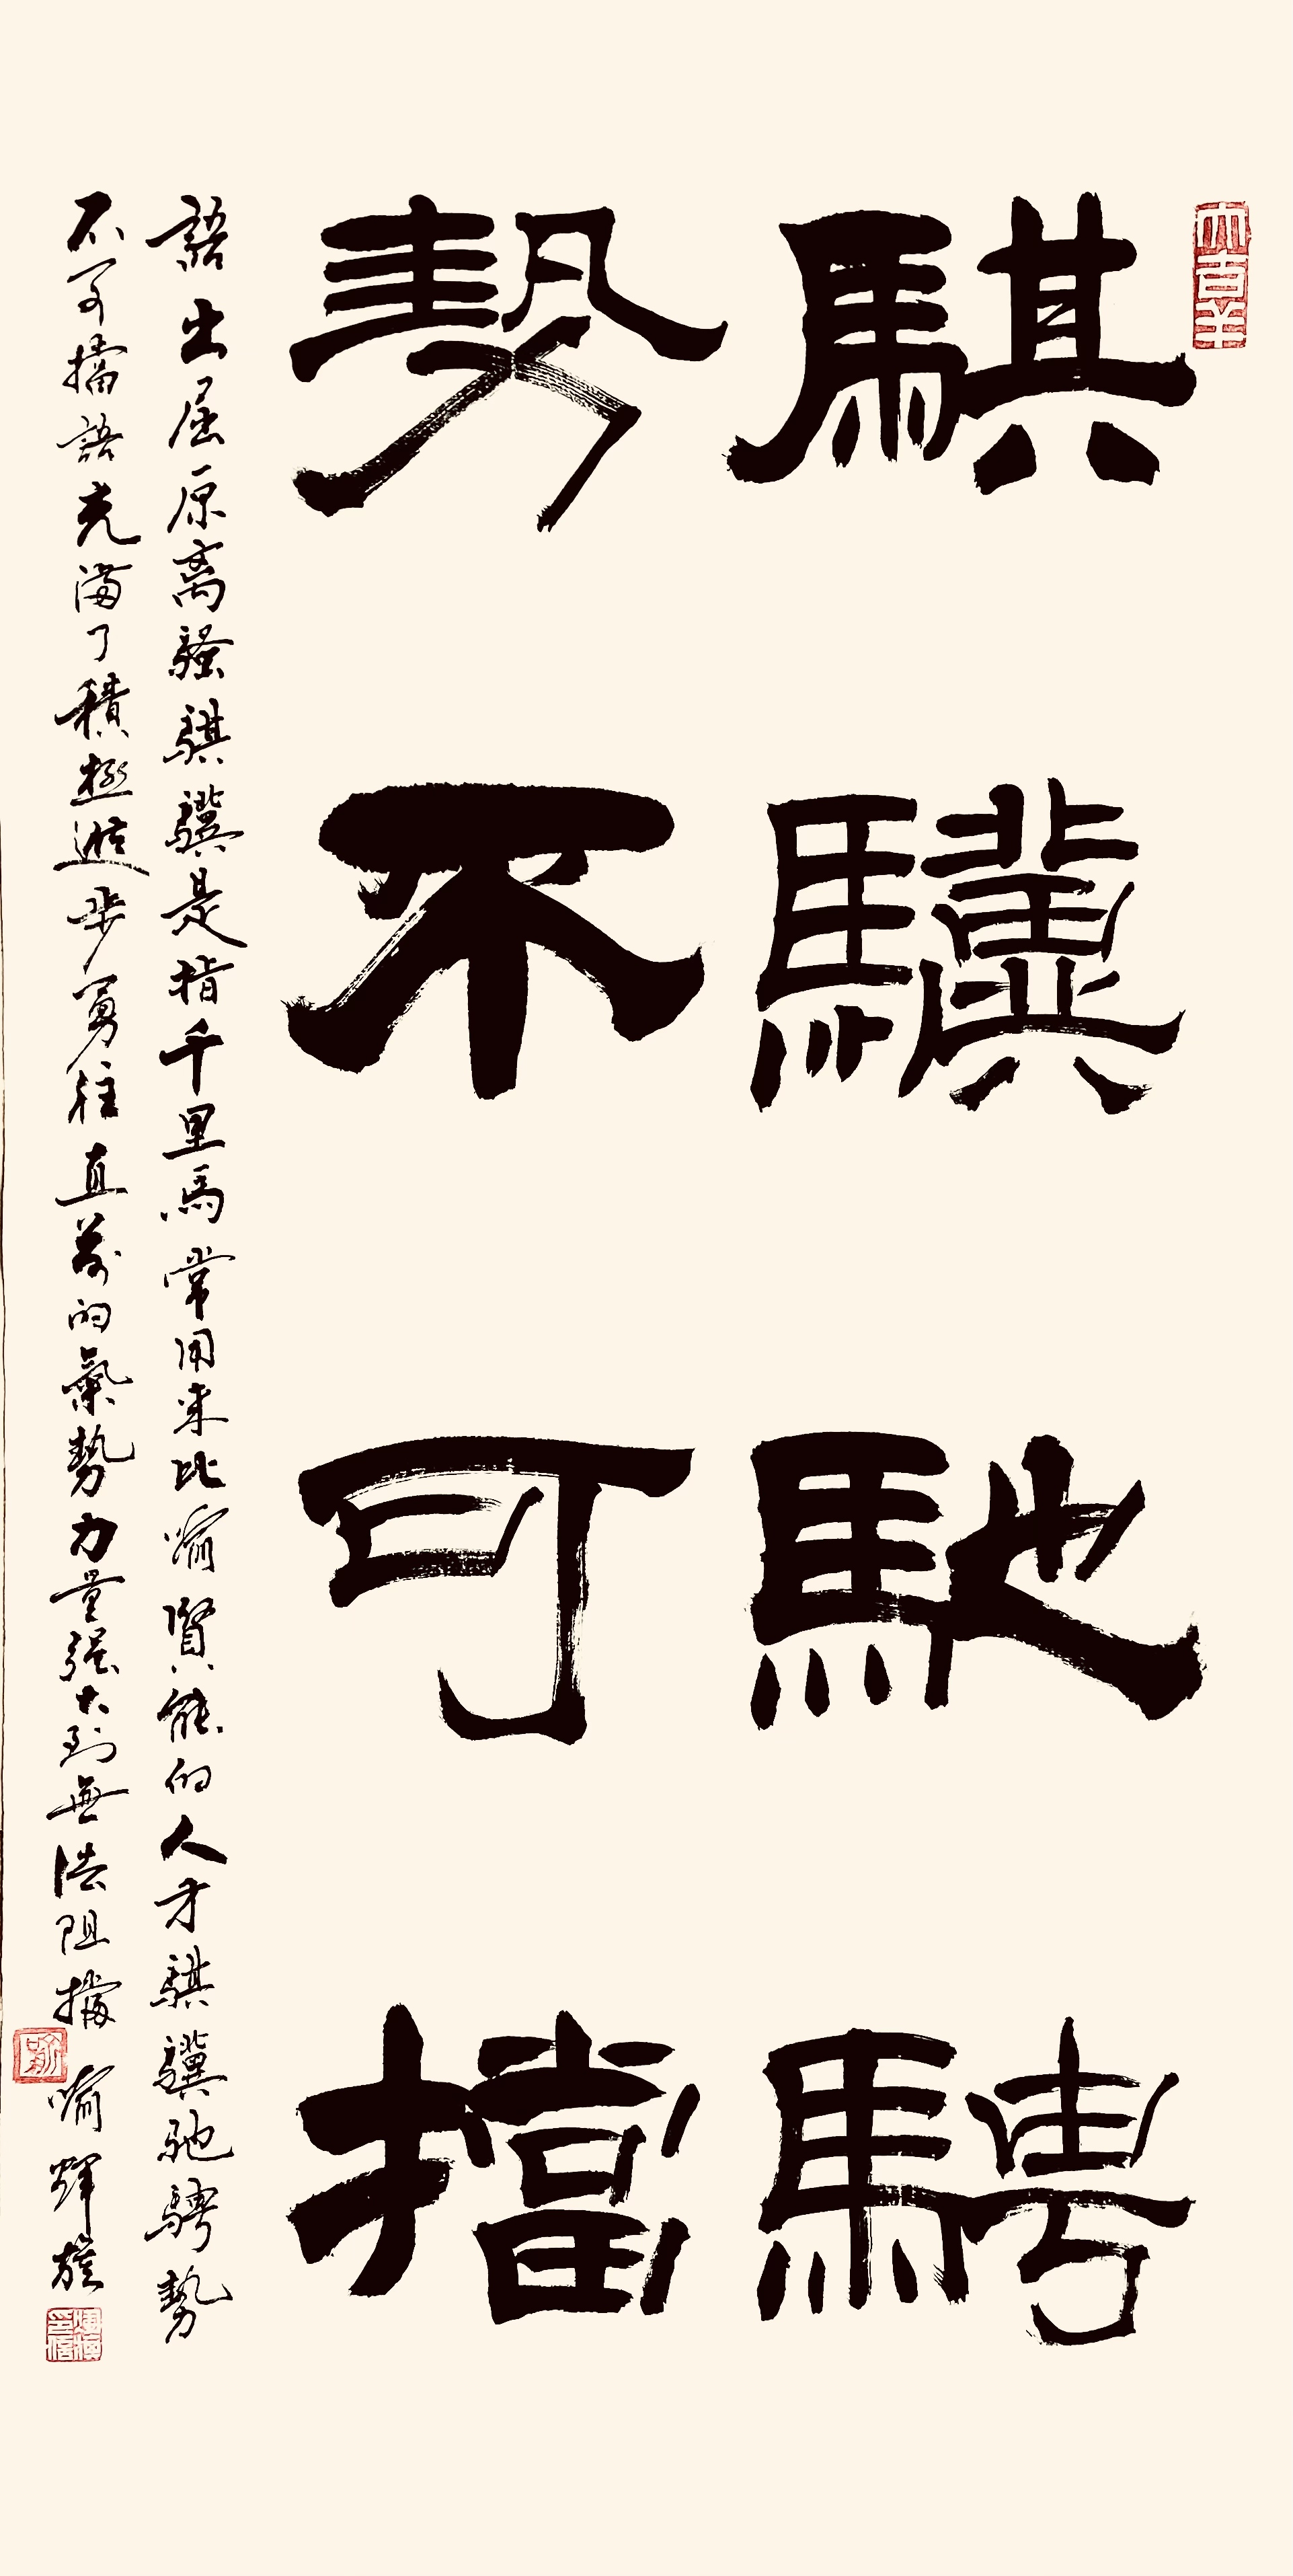 騏驥馳騁
勢不可擋
語出屈原离騷騏驥是指千里馬常用来比喻賢能的人才騏驥馳騁勢
不可擋語充滿了積極進步勇往直前的氣勢力量强大到無法阻擋 喻輝旗
大吉羊
喻